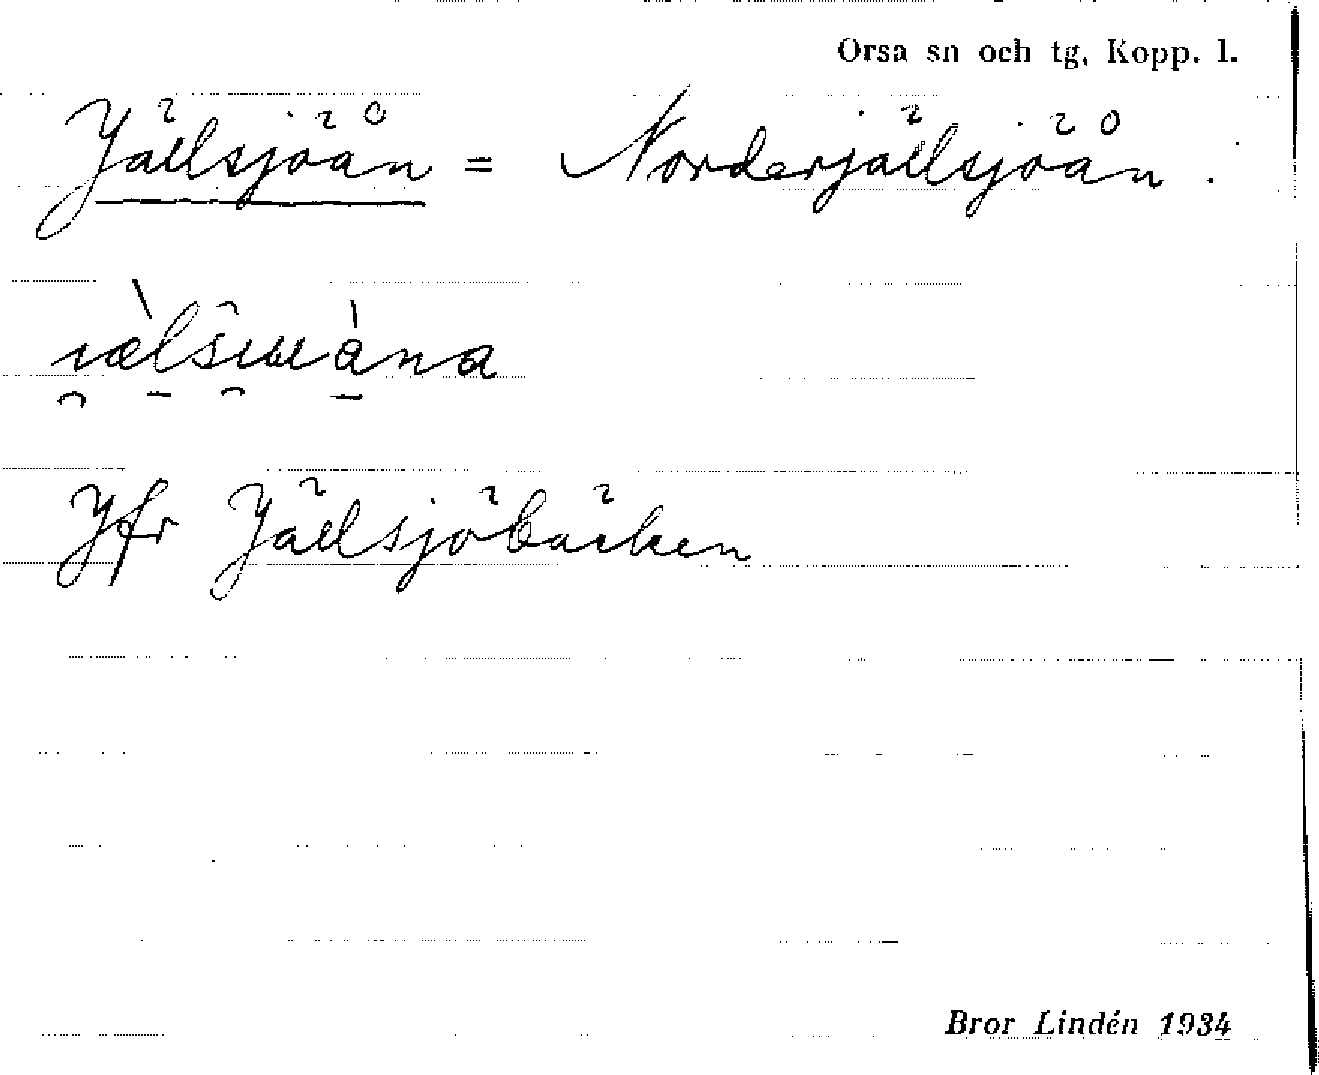 Orsa sn och tg, Kopp. l.
Jällsjöån = Norderjällsjöån.
Jfr Jällsjöbäcken
Bror Lindén 1934